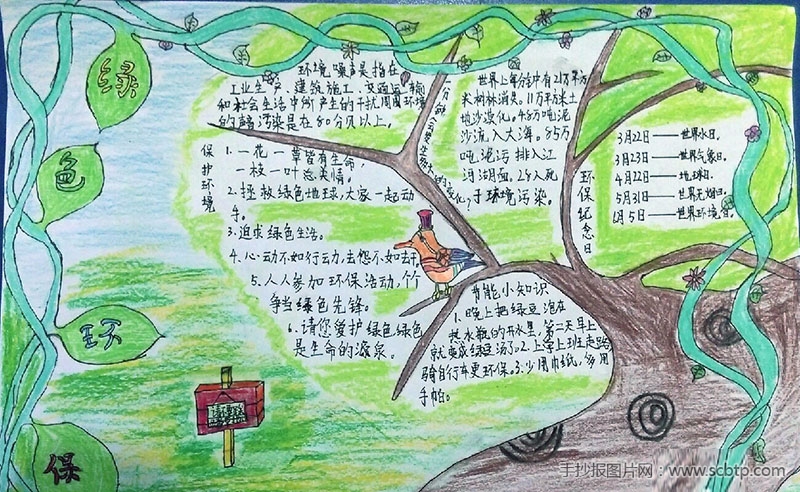 绿
色
环
保
环境噪声是指在
工业生产、建筑施工、交通运输
和社会生活中所产生的干扰周围环境
的声音污染是在80分贝以上。
保护环境
1.一花一草皆有生命
一枝一叶总关情。
2.拯救绿色地球,大家一起动
手。
3.追求绿色生活。
4.心动不如行动,去怨不如去干
5.人人参加环保活动,个个
争当绿色先锋。
6.请您爱护绿色绿色
是生命的源泉。
世界上每分钟有21万平方
米树林消失。11万平方米土
地沙漠化。4.8万吨泥
沙流入大海。85万
吨泥污排入江
河湖面。28人死
于环境污染。
环保纪念日
3月22日——世界水日。
3月23日——世界气象日。
4月22日——地球日。
5月31日——世界无烟日。
6月5日——世界环境日。
节能小知识
1.晚上把绿豆泡在
热水瓶的开水里,第二天早上
就变成绿豆汤了。2.上学上班走路
骑自行车更环保。3.少用巾纸,多用
手帕。
手抄报图片网:www.scbtp.com